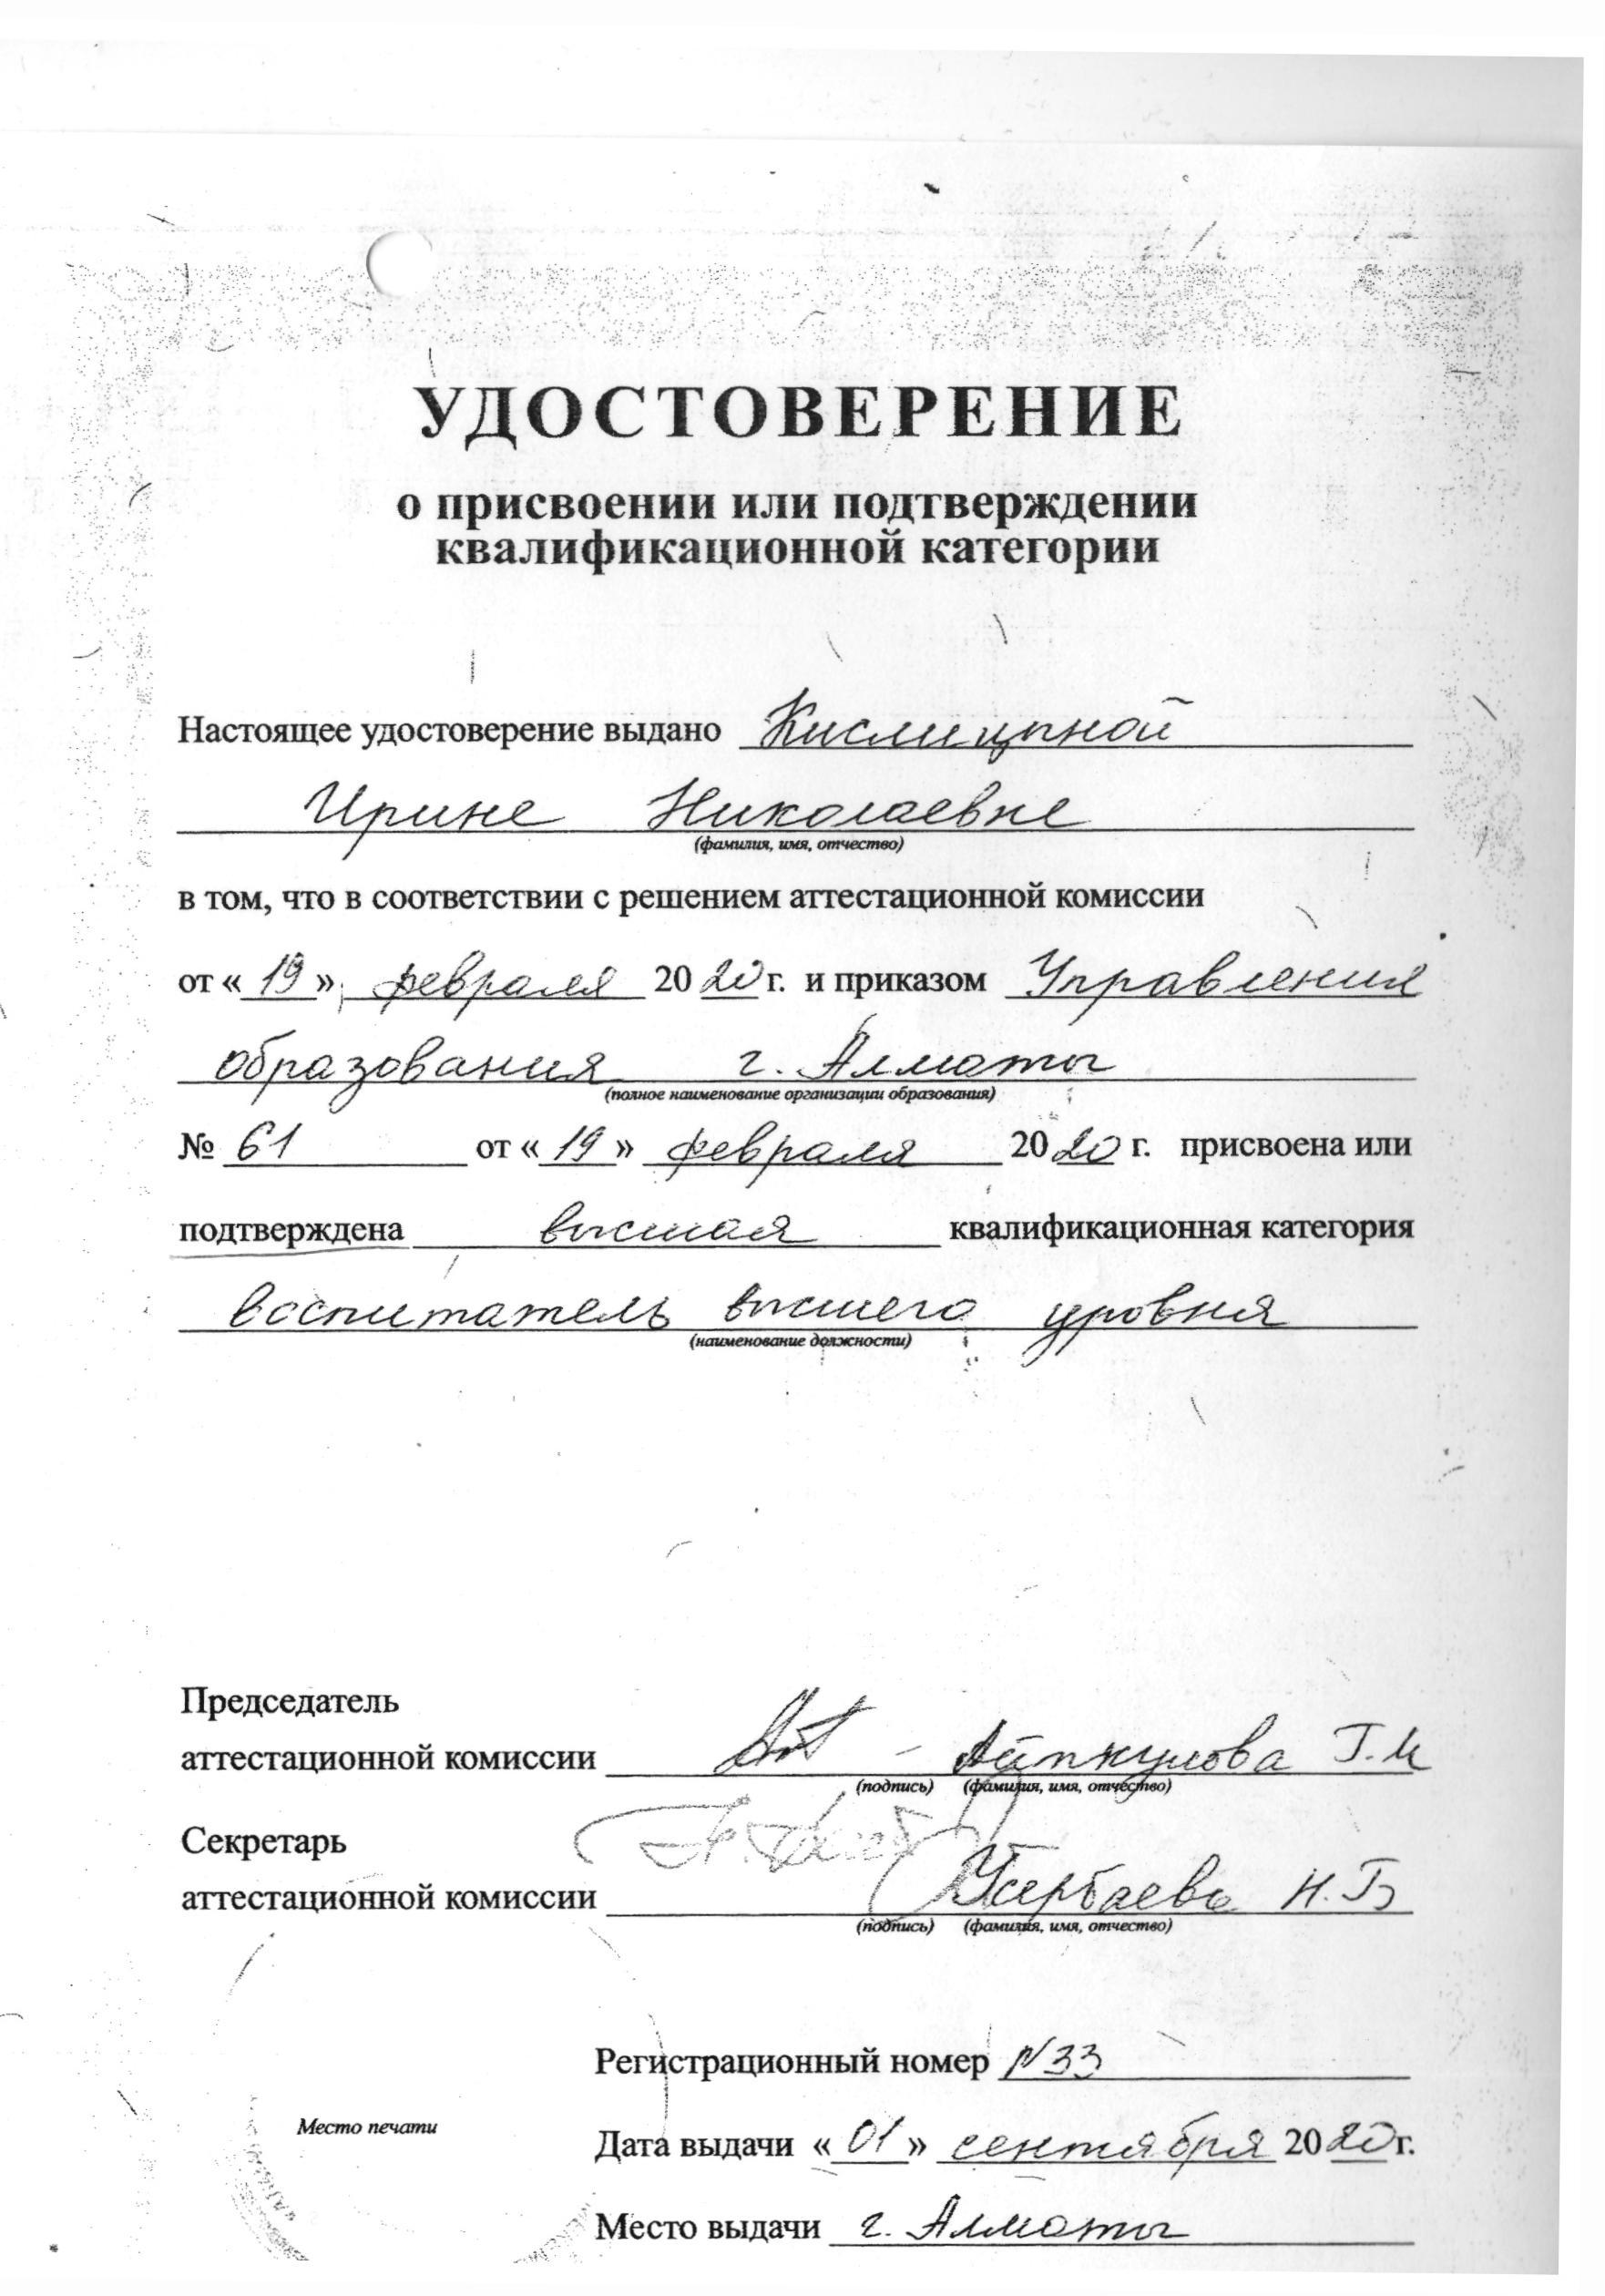 УДОСТОВЕРЕНИЕ
о присвоении или подтверждении
квалификационной категории
Настоящее удостоверение выдано Кислицыной
Ирине Николаевне
(фамилия, имя, отчество)
в том, что в соответствии с решением аттестационной комиссии
от «19» февраля 2020 г. и приказом Управления
образования г. Алматы
(полное наименование организации образования)
№ 61 от «19» февраля 2020 г. присвоена или
подтверждена высшая квалификационная категория
воспитатель высшего уровня
(наименование должности)
Председатель
аттестационной комиссии Айткулова Г.И
(подпись) (фамилия, имя, отчество)
Секретарь
аттестационной комиссии Н.Б
(подпись) (фамилия, имя, отчество)
Регистрационный номер №33
Место печати
Дата выдачи «01» сентября 2020 г.
Место выдачи г. Алматы